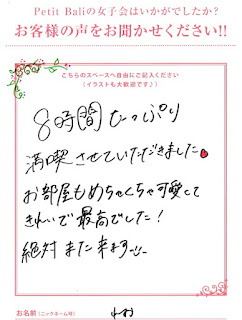 Petit Baliの女子会はいかがでしたか?
お客様の声をお聞かせください!!
こちらのスペースへ自由にご記入ください
(イラストも大歓迎です♪)
8時間たっぷり
満喫させていただきました
お部屋もめちゃくちゃ可愛くて
きれいで最高でした!
絶対また来ます
お名前(ニックネーム可)